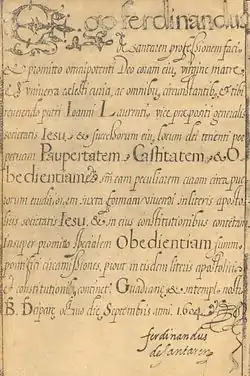 Ego ferdinandus
de santarem professionem facio,
& promitto omnipotenti Deo coram eius virgine matre
& vniuersa cælesti curia, ac omnibus circunstantibus, & tibi
reuerendo patri Ioanni Laurenti, vice præpositi generalis
societatis Iesu, & successorum eius, locum dei tenenti per
petuam Paupertatem Castitatem, & O
bedientiam, & peculiarem curam circa pue
rorum
societatis Iesu, & in eius constitutionibus contetam
Insuper promitto specialem Obedientiam summo
pontifici circa missiones, prout in eisdem literis apostolicis
& constitutionibus continetur. in templo
B. Deiparæ die Septembris anni. 1604
ferdinandus
de santarem